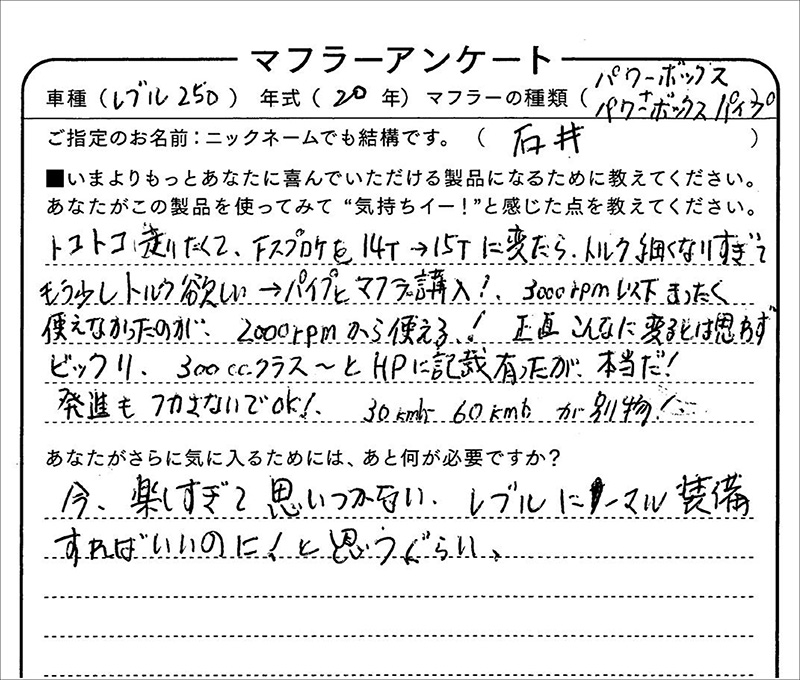 マフラーアンケート
車種（レブル250）年式（20年）マフラーの種類（パワーボックス
+
パワーボックスパイプ
ご指定のお名前：ニックネームでも結構です。（石井）
■いまよりもっとあなたに喜んでいただける製品になるために教えてください。
あなたがこの製品を使ってみて“気持ちイー！”と感じた点を教えてください。
トコトコ走りたくて、Fスプロケを14T→15Tに変たら、トルク細くなりすぎて
もう少しトルク欲しい→パイプとマフラー講入！、3000rpm以下まったく
使えなかったのが、2000rpmから使える、！正直こんなに変るとは思わず
ビックリ、300ccクラス〜とHPに記載有ったが、本当だ！
発進もフカさないでOK！、30kmh 60kmhが別物！
あなたがさらに気に入るためには、あと何が必要ですか？
今、楽しすぎて思いつかない、レブルにノーマル装備
すればいいのに！と思うぐらい、